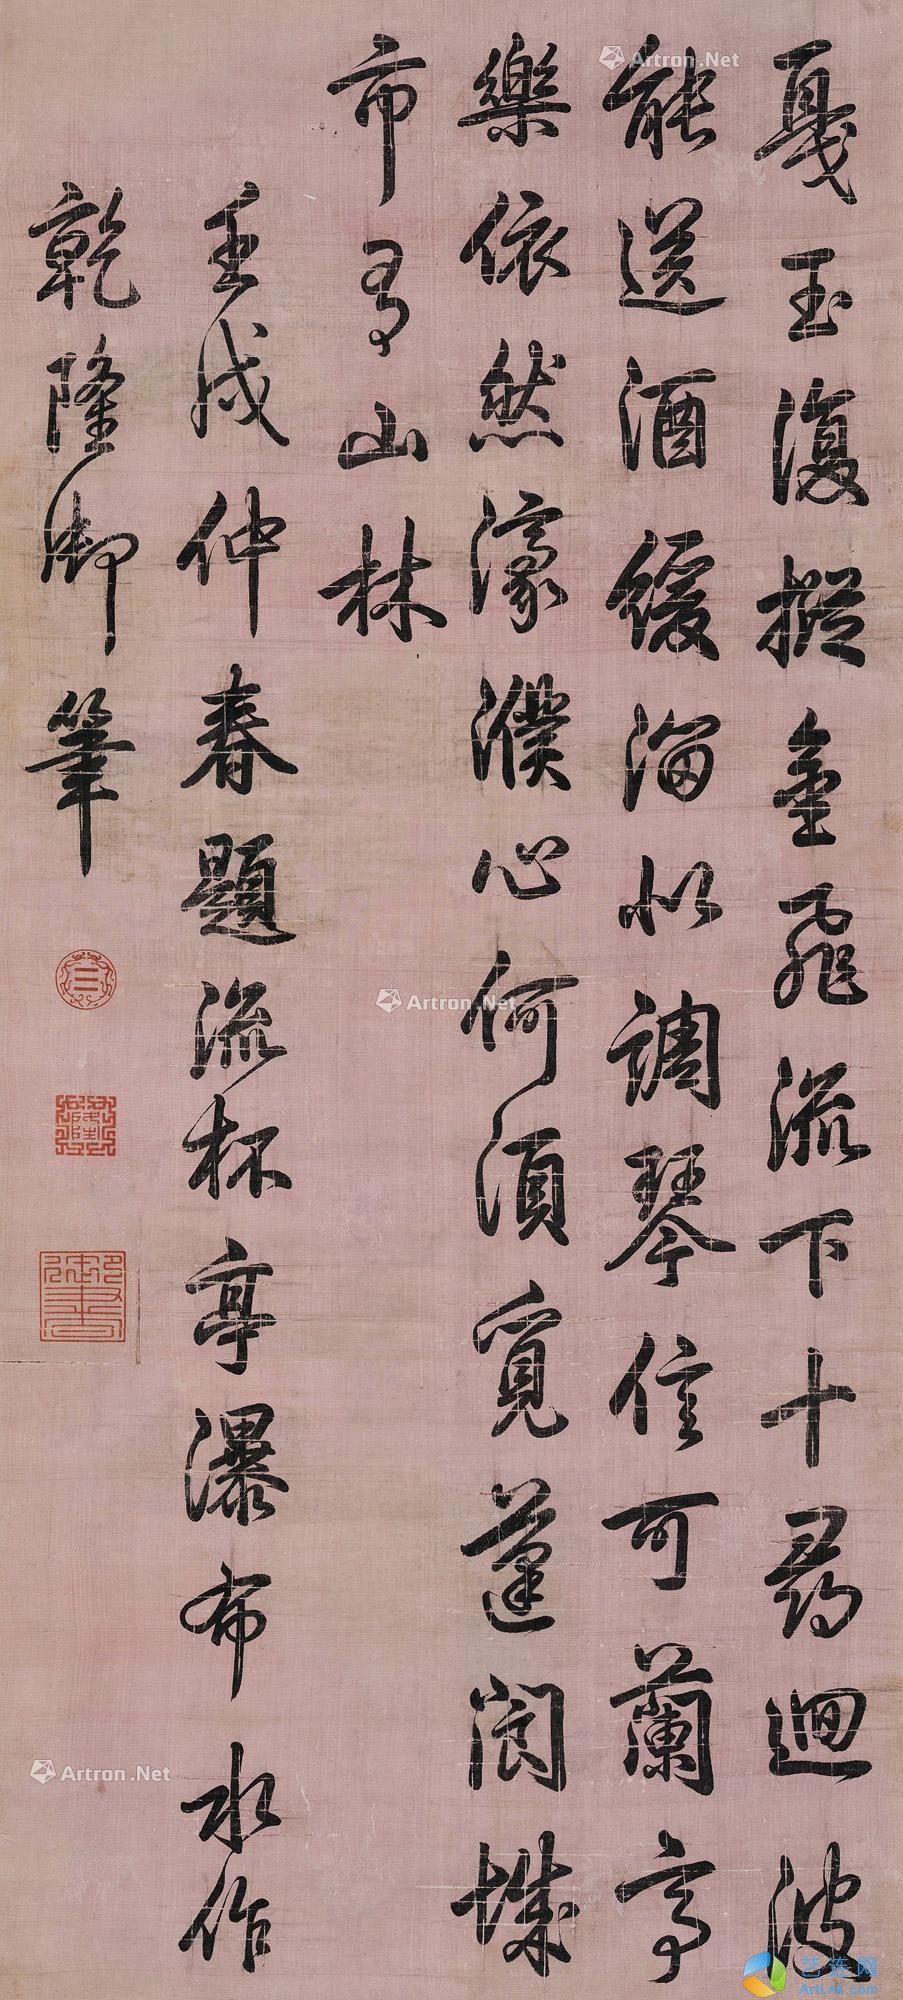 戛玉復摐金飛流下十尋迴波
能送酒緩溜似調琴信可蘭亭
樂依然濠濮心何須覓蓬閬城
市有山林
壬戌仲春題流杯亭瀑布水作
乾隆御筆
☰
乾隆
御書
Artron.Net
Artron.Net
Artron.Net
艺连网
ArtLnk.com